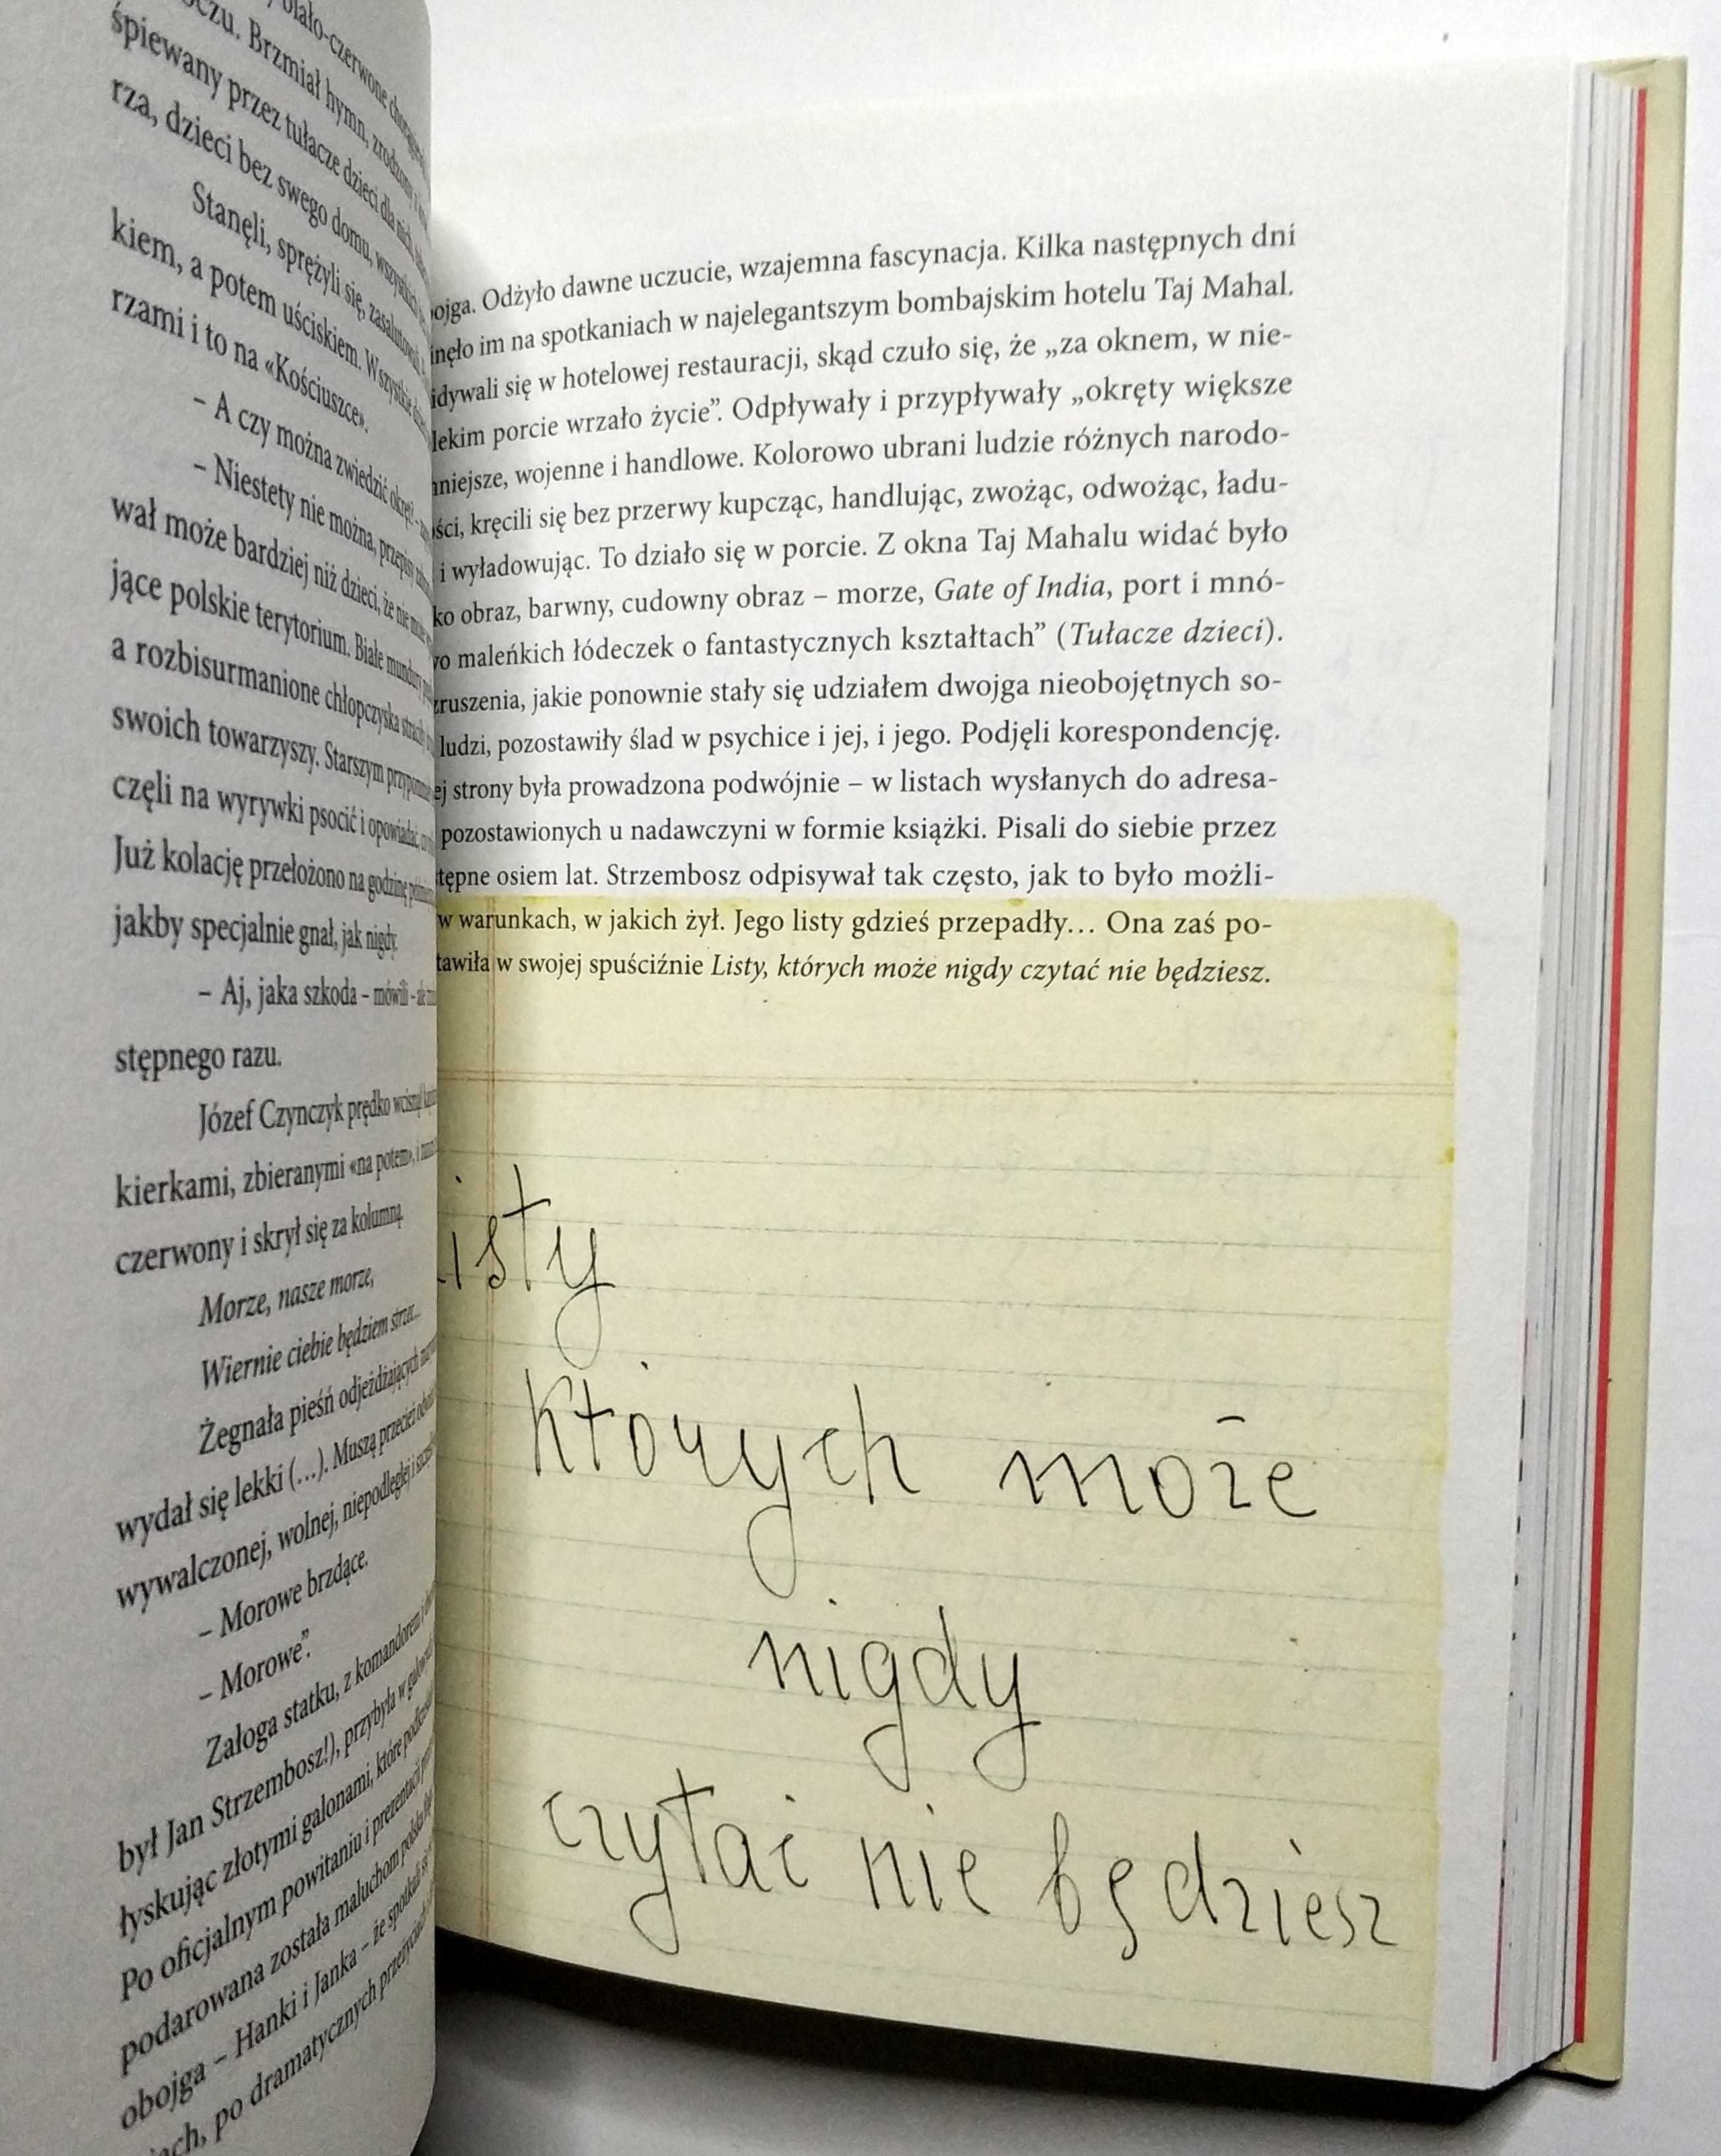 biało-czerwone
Brzmiał hymn, zrodzony
śpiewany przez tułacze dzieci dla nich
rza, dzieci bez swego domu, wszystkich
Stanęli, sprężyli się, zasalutowali
kiem, a potem uściskiem. Wszystkie
rzami i to na «Kościuszce».
– A czy można zwiedzić okręt? –
– Niestety nie można, przepisy
wał może bardziej niż dzieci, że nie może
jące polskie terytorium. Białe mundury
a rozbisurmanione chłopczyska straciły
swoich towarzyszy. Starszym
częli na wyrywki psocić i opowiadać,
Już kolację przełożono na godzinę
jakby specjalnie gnał, jak nigdy.
– Aj, jaka szkoda – mówili –
stępnego razu.
Józef Czynczyk prędko wcisnął
kierkami, zbieranymi «na potem», i
czerwony i skrył się za kolumną.
Morze, nasze morze,
Wiernie ciebie będziem strzec...
Żegnała pieśń odjeżdżających
wydał się lekki (…). Muszą przecież
wywalczonej, wolnej, niepodległej i
– Morowe brzdące.
– Morowe”.
Załoga statku, z komandorem
był Jan Strzembosz!), przybyła w
łyskując złotymi galonami, które
Po oficjalnym powitaniu i prezentacji
podarowana została maluchom polska
obojga – Hanki i Janka – że spotkali się
po dramatycznych przeżyciach
ojga. Odżyło dawne uczucie, wzajemna fascynacja. Kilka następnych dni
nęło im na spotkaniach w najelegantszym bombajskim hotelu Taj Mahal.
idywali się w hotelowej restauracji, skąd czuło się, że „za oknem, w nie-
lekim porcie wrzało życie”. Odpływały i przypływały „okręty większe
niejsze, wojenne i handlowe. Kolorowo ubrani ludzie różnych narodo-
ści, kręcili się bez przerwy kupcząc, handlując, zwożąc, odwożąc, ładu-
i wyładowując. To działo się w porcie. Z okna Taj Mahalu widać było
ko obraz, barwny, cudowny obraz – morze, Gate of India, port i mnó-
wo maleńkich łódeczek o fantastycznych kształtach” (Tułacze dzieci).
zruszenia, jakie ponownie stały się udziałem dwojga nieobojętnych so-
ludzi, pozostawiły ślad w psychice i jej, i jego. Podjęli korespondencję.
ej strony była prowadzona podwójnie – w listach wysłanych do adresa-
pozostawionych u nadawczyni w formie książki. Pisali do siebie przez
tępne osiem lat. Strzembosz odpisywał tak często, jak to było możli-
w warunkach, w jakich żył. Jego listy gdzieś przepadły… Ona zaś po-
tawiła w swojej spuściźnie Listy, których może nigdy czytać nie będziesz.
isty
których może
nigdy
czytać nie będziesz